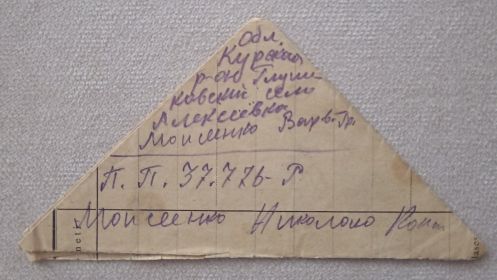 Обл.
Курская
р-он Глуш-
ковский село
Алексеевка
Моисеенко Варв. Гр.
П. П. 37.776-Р
Моисеенко Николаю Конт